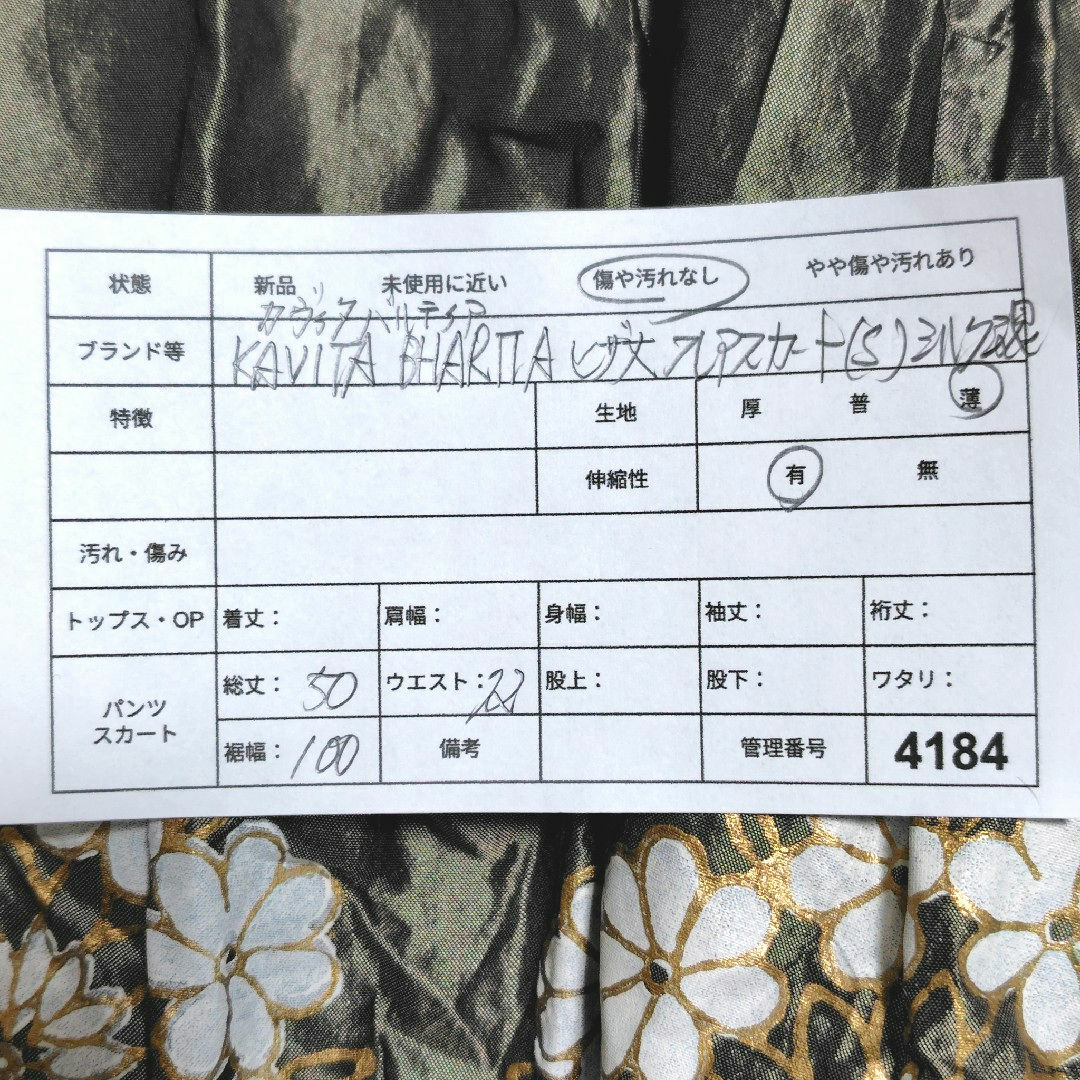 状態 新品 未使用に近い 傷や汚れなし やや傷や汚れあり
カヴィタ バルティア
ブランド等 KAVITA BHARTIA ヒザ丈 フレアスカート(S)シルク混
特徴 生地 厚 普 薄
伸縮性 有 無
汚れ・傷み
トップス・OP 着丈： 肩幅： 身幅： 袖丈： 裄丈：
パンツ スカート
総丈：50 ウエスト：22 股上： 股下： ワタリ：
裾幅：100 備考 管理番号 4184